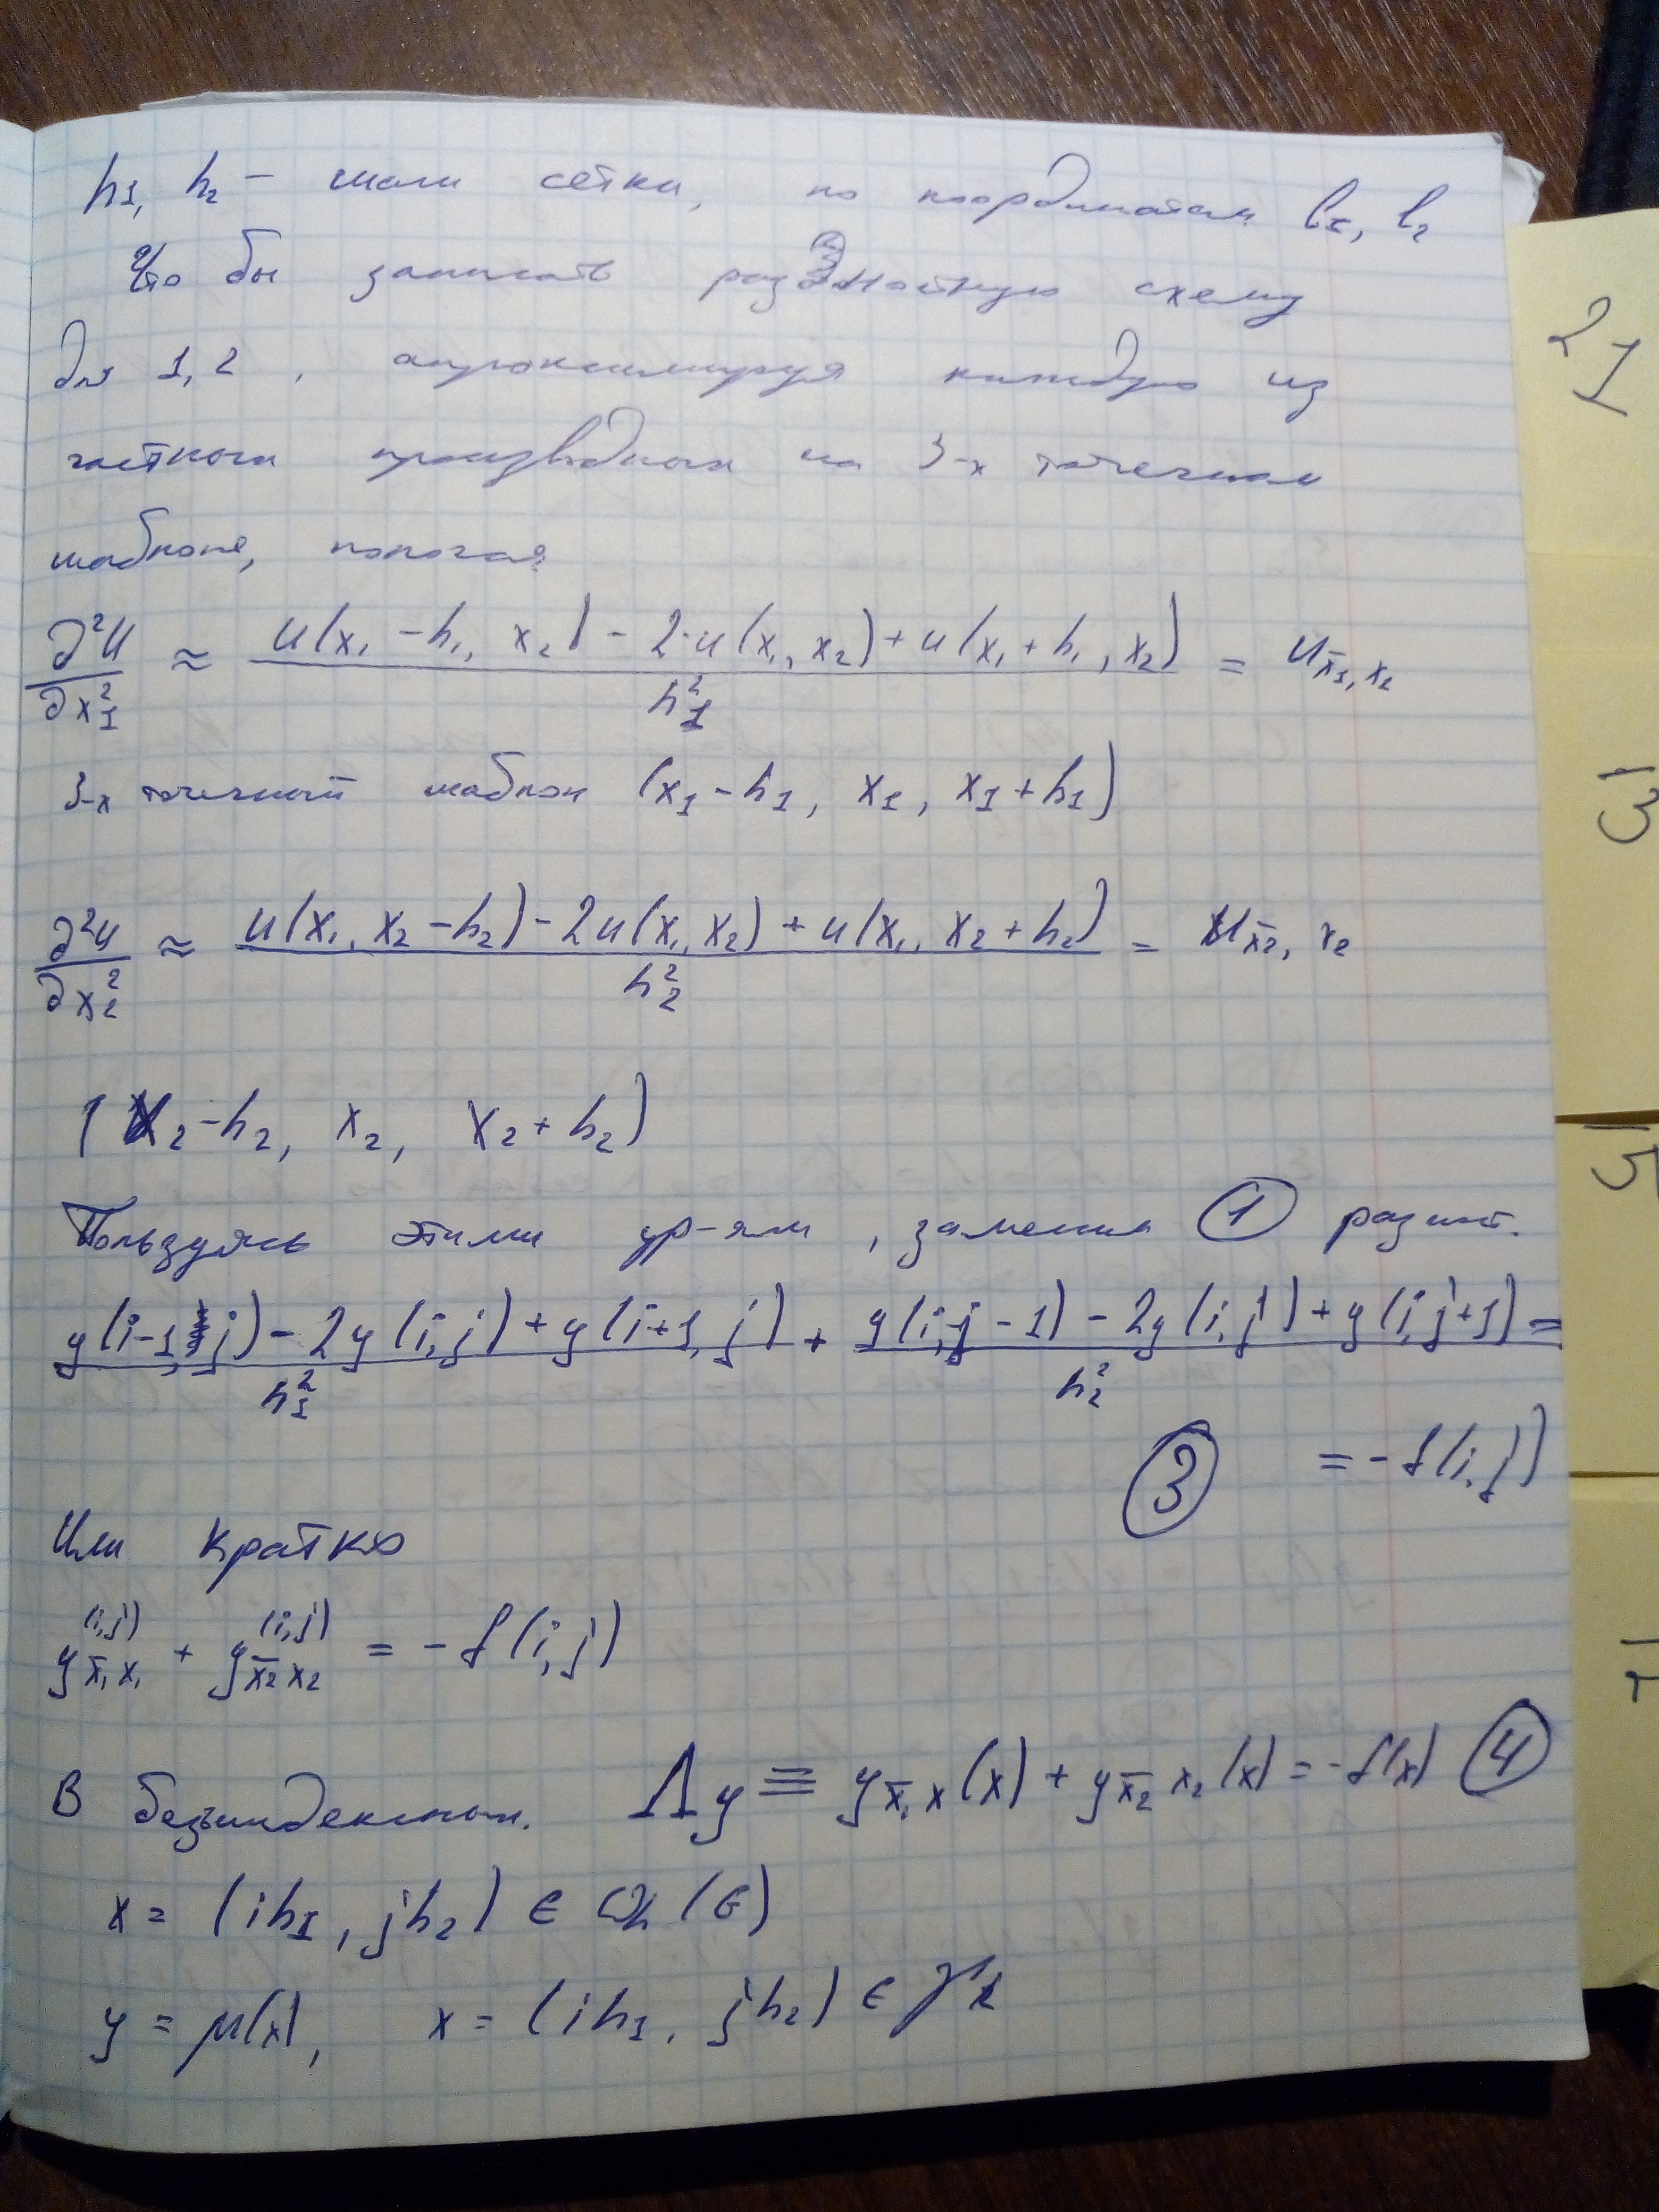 h1, h₂ – шаги сетки, по координатам l₁, l₂
Что бы записать разностную схему
для 1, 2 , апроксимируя каждую из
частных производных на 3-х точечном
шаблоне, полагая
∂²u/∂x₁² ≈ (u(x₁ – h₁, x₂) – 2·u(x₁, x₂) + u(x₁ + h₁, x₂))/h₁² = u_x̄₁, x₁
3-х точечный шаблон (x₁ – h₁, x₁, x₁ + h₁)
∂²u/∂x₂² ≈ (u(x₁, x₂ – h₂) – 2u(x₁, x₂) + u(x₁, x₂ + h₂))/h₂² = u_x̄₂, x₂
(x₂ – h₂, x₂, x₂ + h₂)
Пользуясь этими ур-ями, заменим ① разност.
(y(i–1, j) – 2y(i,j) + y(i+1, j))/h₁² + (y(i,j – 1) – 2y(i,j) + y(i,j+1))/h₂² =
③ = – f(i,j)
Или кратко
y_x̄₁x₁^(i,j) + y_x̄₂x₂^(i,j) = – f(i,j)
В безъиндексном. Λy ≡ y_x̄₁x(x) + y_x̄₂x₂(x) = – f(x) ④
x = (ih₁, jh₂) ∈ ωh(G)
y = μ(x), x = (ih₁, jh₂) ∈ γh
21
13
15